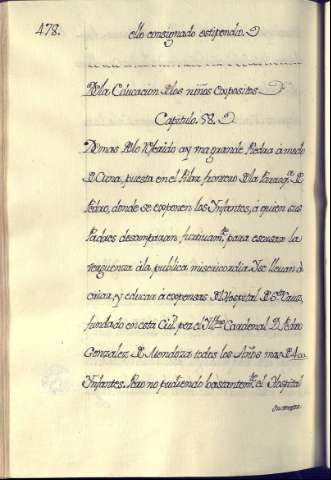 478.
ello consignado estipendio.
De la Educacion de los niños Expositos
Capitulo. 58.
Demas de lo referido ay una grande Piedra a modo
de Cuna puesta en el Pilar frontero de la Parroq.ª de S.
Pedro, donde se exponen los Infantes, a quien sus
Padres desamparan furtivam.te para escusar la
verguenza à la publica misericordia Y se llevan à
criar, y educar à expensas del Hospital de S.ta Cruz,
fundado en esta Ciu.d por el Ill.mo Cardenal D. Pedro
Gonzalez de Mendoza todos los Años mas de 400
Infantes. Pero no pudiendo bastantem.te el Hospital